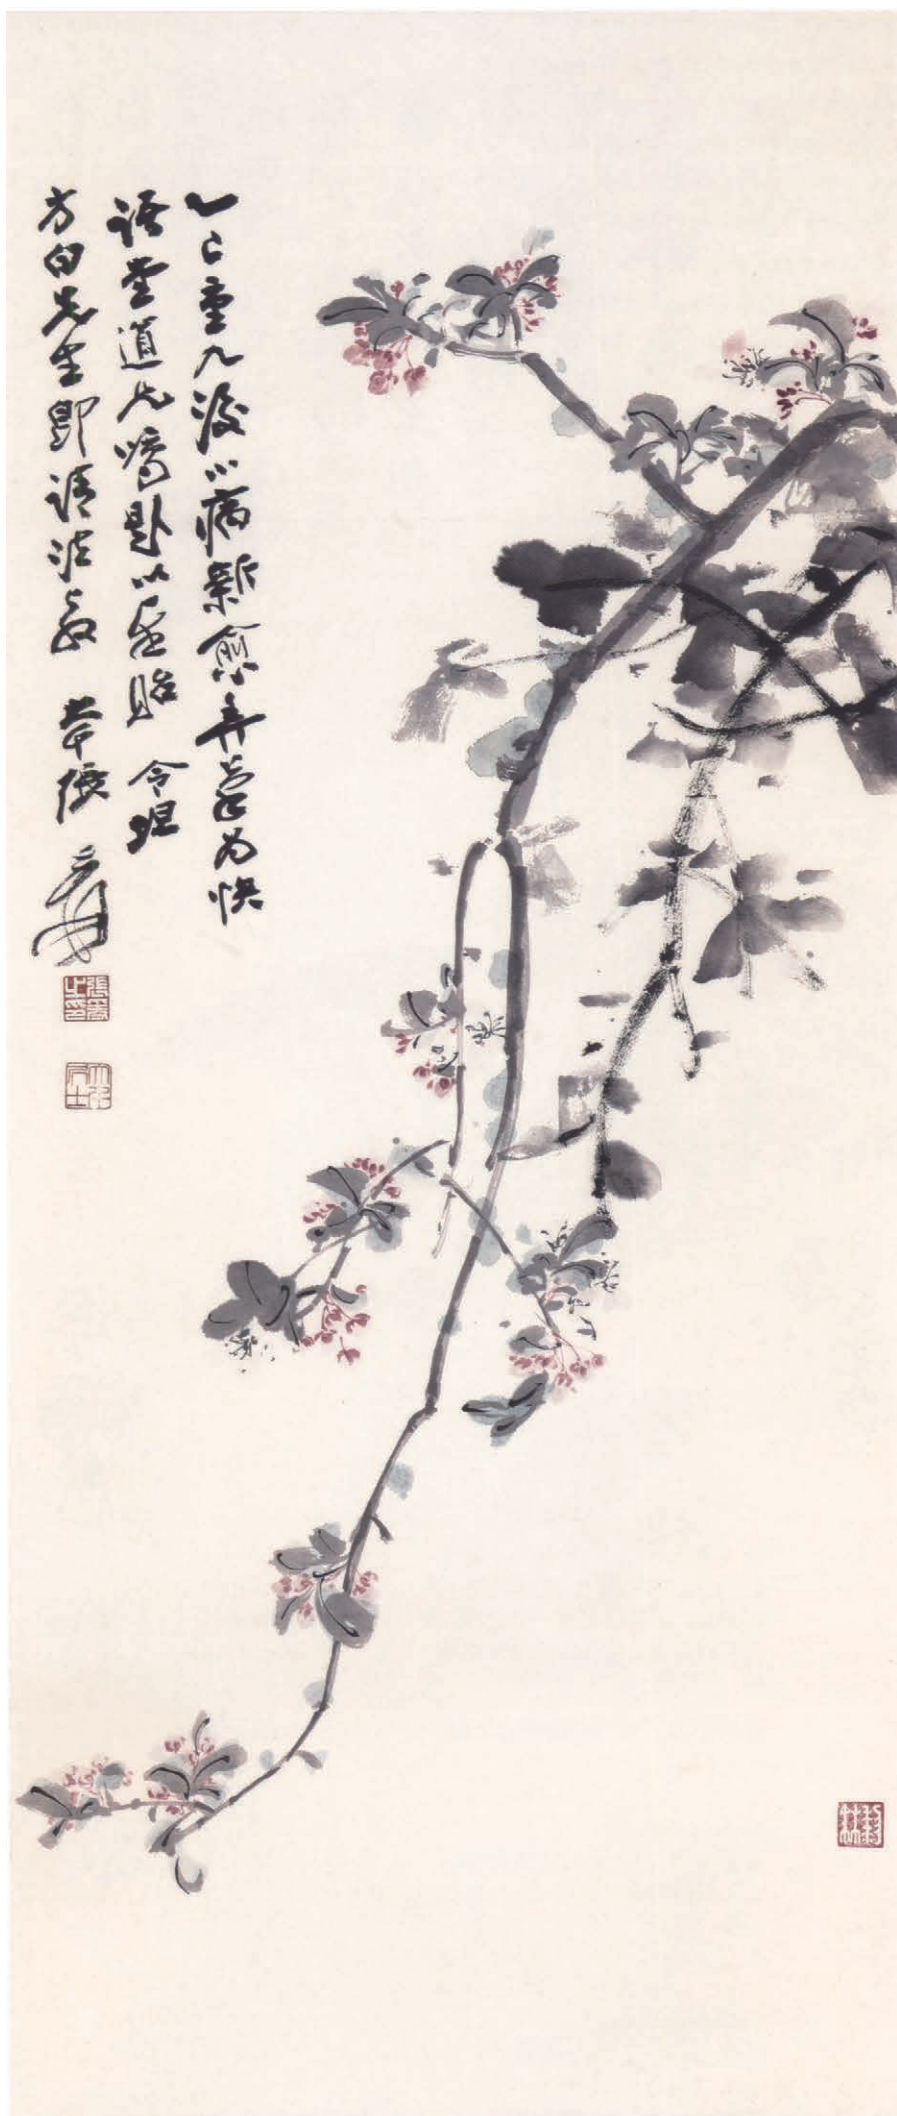 乙巳重九後小病新愈弄筆為快
語堂道兄囑題以貽 令坦
方白先生即請法教 大千張爰
張爰之印
大千居士